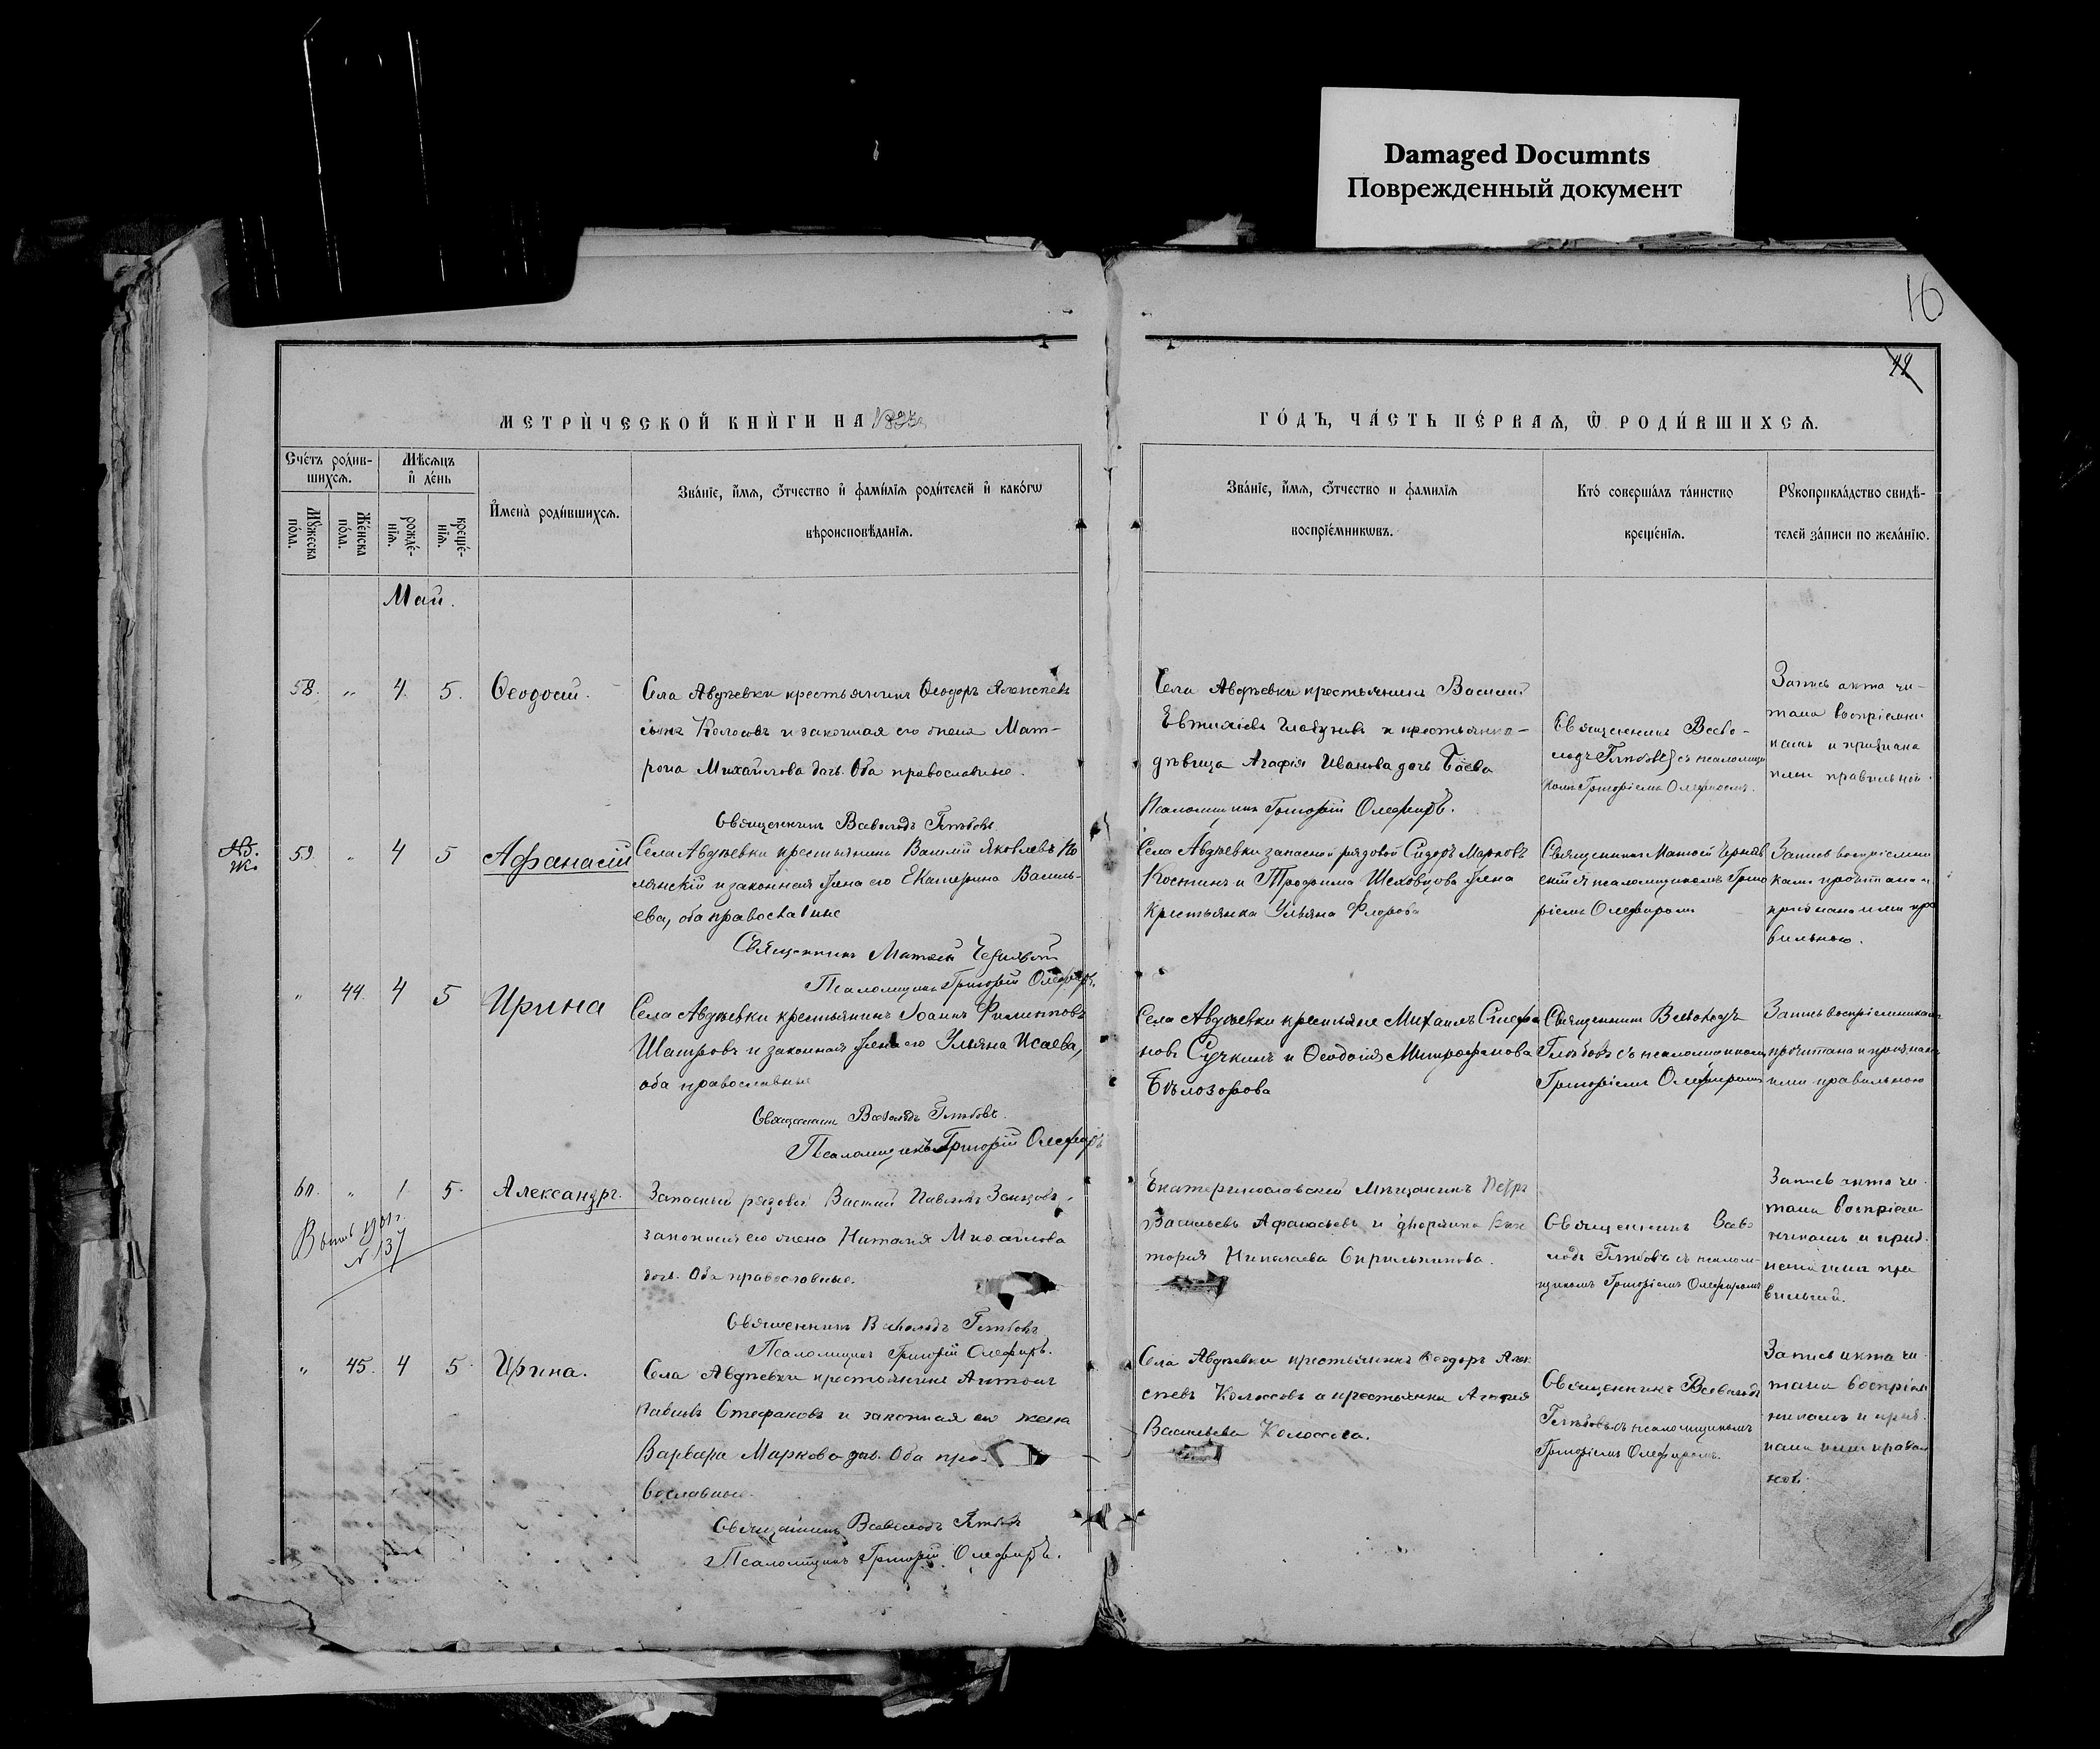 Damaged Documnts
Поврежденный документ
16
МЕТРИЧЕСКОЙ КНИГИ НА
ГОДЪ, ЧАСТЬ ПЕРВАЯ, Ѿ РОДИВШИХСЯ.
Счетъ родив-
шихся.
Мужеска пола.
Женска пола.
Мѣсяцъ и день
рожде-
нія.
креще-
нія.
Имена родившихся.
Званіе, имя, отчество и фамилія родителей и какогѡ
вѣроисповѣданія.
Званіе, имя, отчество и фамилія
воспріемникѡвъ.
Кто совершалъ таинство
крещенія.
Рукоприкладство свидѣ-
телей записи по желанію.
Май.
58. " 4. 5. Ѳеодосій.
Села Авдѣевки крестьянинъ Ѳеодоръ Алексѣевъ
сынъ Колосовъ и законная его жена Мат-
рона Михайлова дочь. Оба православные.
Священникъ Всеволодъ Глѣбовъ
Села Авдѣевки крестьянинъ Василій
Евтихіевъ и крестьянка-
дѣвица Агафія Иванова дочь Боева
Псаломщикъ Григорій Олефиръ.
Священникъ Всево-
лодъ Глѣбовъ съ псаломщи
комъ Григоріемъ Олефиромъ.
Запись акта чи-
тана воспріемни
камъ и признана
ими правильной.
59. " 4 5 Афанасій
Села Авдѣевки крестьянинъ Василій Яковлевъ По
лянскій и законная жена его Екатерина Василь-
ева, оба православные
Священникъ Матѳей Чернявскій
Псаломщикъ Григорій Олефиръ.
Села Авдѣевки запасной рядовой Сидоръ Марковъ
Костинъ и Трофима Шеховцова жена
крестьянка Ульяна Флорова
Священникъ Матѳей Черняв
скій съ псаломщикомъ Григо
ріемъ Олефиромъ
Запись воспріемни
камъ прочитана и
признана ими пра
вильною.
" 44. 4 5 Ирина
Села Авдѣевки крестьянинъ Іоаннъ Филипповъ
Шатровъ и законная жена его Ульяна Исаева,
оба православные
Священникъ Всеволодъ Глѣбовъ.
Псаломщикъ Григорій Олефиръ
Села Авдѣевки крестьяне Михаилъ Стефа
новъ Сучкинъ и Ѳеодосія Митрофанова
Бѣлозорова
Священникъ Всеволодъ
Глѣбовъ съ псаломщикомъ
Григоріемъ Олефиромъ
Запись воспріемникамъ
прочитана и признана
ими правильною
60. " 1 5. Александръ.
Выпись 1901 г.
№ 137
Запасный рядовой Василій Павловъ
законная его жена Наталія Михайлова
дочь. Оба православные.
Священникъ Всеволодъ Глѣбовъ
Псаломщикъ Григорій Олефиръ.
Екатеринославскій мѣщанинъ Петръ
Васильевъ Афанасьевъ и дворянка Вик
торія Николаева Скрыльникова.
Священникъ Всево
лодъ Глѣбовъ съ псалом-
щикомъ Григоріемъ Олефиромъ
Запись акта чи
тана воспріем
никамъ и приз-
нана ими пра
вильной.
" 45. 4 5. Ирина.
Села Авдѣевки крестьянинъ Антонъ
Павловъ Стефановъ и законная его жена
Варвара Маркова дочь. Оба пра-
вославные.
Священникъ Всеволодъ Глѣбовъ
Псаломщикъ Григорій Олефиръ.
Села Авдѣевки крестьянинъ Ѳеодоръ Алек
сѣевъ Колоссовъ и крестьянка Агафія
Васильева Колоссова.
Священникъ Всеволодъ
Глѣбовъ съ псаломщикомъ
Григоріемъ Олефиромъ.
Запись акта чи
тана воспріем
никамъ и приз-
нана ими правиль
ной.